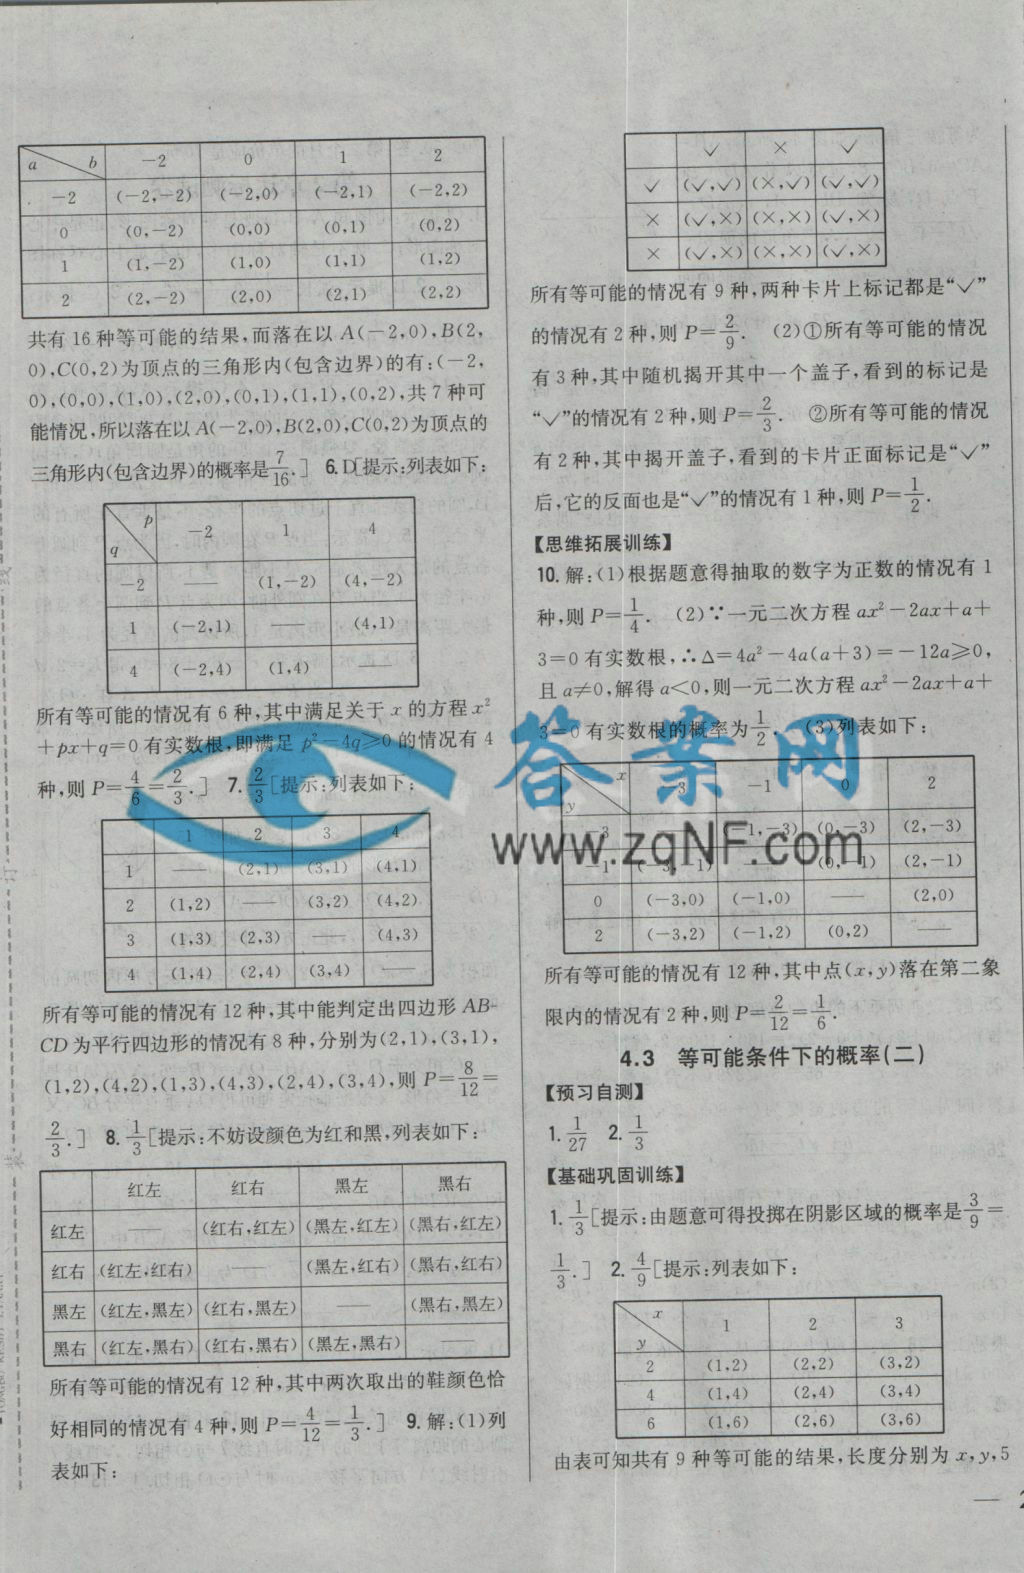 a b −2 0 1 2
−2 (−2,−2) (−2,0) (−2,1) (−2,2)
0 (0,−2) (0,0) (0,1) (0,2)
1 (1,−2) (1,0) (1,1) (1,2)
2 (2,−2) (2,0) (2,1) (2,2)
共有 16 种等可能的结果,而落在以 A(−2,0),B(2,
0),C(0,2)为顶点的三角形内(包含边界)的有:(−2,
0),(0,0),(1,0),(2,0),(0,1),(1,1),(0,2),共 7 种可
能情况,所以落在以 A(−2,0),B(2,0),C(0,2)为顶点的
三角形内(包含边界)的概率是7/16.] 6.D[提示:列表如下:
q p −2 1 4
−2 —— (1,−2) (4,−2)
1 (−2,1) —— (4,1)
4 (−2,4) (1,4) ——
所有等可能的情况有 6 种,其中满足关于 x 的方程 x²
+px+q=0 有实数根,即满足 p²−4q⩾0 的情况有 4
种,则 P=4/6=2/3.] 7.2/3[提示:列表如下:
1 2 3 4
1 —— (2,1) (3,1) (4,1)
2 (1,2) —— (3,2) (4,2)
3 (1,3) (2,3) —— (4,3)
4 (1,4) (2,4) (3,4) ——
所有等可能的情况有 12 种,其中能判定出四边形 AB-
CD 为平行四边形的情况有 8 种,分别为(2,1),(3,1),
(1,2),(4,2),(1,3),(4,3),(2,4),(3,4),则 P=8/12=
2/3.] 8.1/3[提示:不妨设颜色为红和黑,列表如下:
红左 红右 黑左 黑右
红左 —— (红右,红左) (黑左,红左) (黑右,红左)
红右 (红左,红右) —— (黑左,红右) (黑右,红右)
黑左 (红左,黑左) (红右,黑左) —— (黑右,黑左)
黑右 (红左,黑右) (红右,黑右) (黑左,黑右) ——
所有等可能的情况有 12 种,其中两次取出的鞋颜色恰
好相同的情况有 4 种,则 P=4/12=1/3.] 9.解:(1)列
表如下:
✓ × ✓
✓ (✓,✓) (×,✓) (✓,✓)
× (✓,×) (×,×) (✓,×)
× (✓,×) (×,×) (✓,×)
所有等可能的情况有 9 种,两种卡片上标记都是“✓”
的情况有 2 种,则 P=2/9. (2)①所有等可能的情况
有 3 种,其中随机揭开其中一个盖子,看到的标记是
“✓”的情况有 2 种,则 P=2/3. ②所有等可能的情况
有 2 种,其中揭开盖子,看到的卡片正面标记是“✓”
后,它的反面也是“✓”的情况有 1 种,则 P=1/2.
【思维拓展训练】
10.解:(1)根据题意得抽取的数字为正数的情况有 1
种,则 P=1/4. (2)∵一元二次方程 ax²−2ax+a+
3=0 有实数根,∴Δ=4a²−4a(a+3)=−12a⩾0,
且 a≠0,解得 a<0,则一元二次方程 ax²−2ax+a+
3=0 有实数根的概率为1/2. (3)列表如下:
y x −3 −1 0 2
−3 (−1,−3) (0,−3) (2,−3)
−1 (−3,−1) (0,−1) (2,−1)
0 (−3,0) (−1,0) —— (2,0)
2 (−3,2) (−1,2) (0,2) ——
所有等可能的情况有 12 种,其中点(x,y)落在第二象
限内的情况有 2 种,则 P=2/12=1/6.
4.3 等可能条件下的概率(二)
【预习自测】
1.1/27 2.1/3
【基础巩固训练】
1.1/3[提示:由题意可得投掷在阴影区域的概率是3/9=
1/3.] 2.4/9[提示:列表如下:
y x 1 2 3
2 (1,2) (2,2) (3,2)
4 (1,4) (2,4) (3,4)
6 (1,6) (2,6) (3,6)
由表可知共有 9 种等可能的结果,长度分别为 x,y,5
答案网
www.zqNF.com